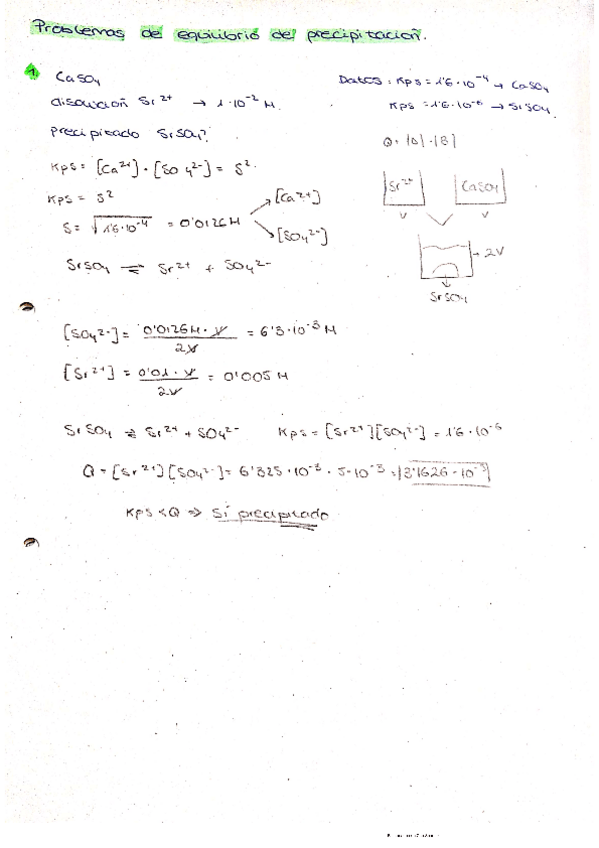 Problemas de equilibrio de precipitación.
1. CaSO4
Datos: Kps = 1'6·10^-4 → CaSO4
disolución Sr2+ → 1·10^-2 M.
Kps = 1'6·10^-6 → SrSO4
precipitado SrSO4?
Q = |A|·|B|
Kps = [Ca2+]·[SO4 2-] = S^2
Kps = S^2
S = √1'6·10^-4 = 0'0126 M
[Ca2+]
[SO4 2-]
Sr2+
CaSO4
V
V
2V
SrSO4
SrSO4 ⇌ Sr2+ + SO4 2-
[SO4 2-] = 0'0126 M · V / 2V = 6'3·10^-3 M
[Sr2+] = 0'01 · V / 2V = 0'005 M
SrSO4 ⇌ Sr2+ + SO4 2- Kps = [Sr2+][SO4 2-] = 1'6·10^-6
Q = [Sr2+][SO4 2-] = 6'325·10^-3 · 5·10^-3 = 3'1626·10^-5
Kps < Q => Sí precipitado